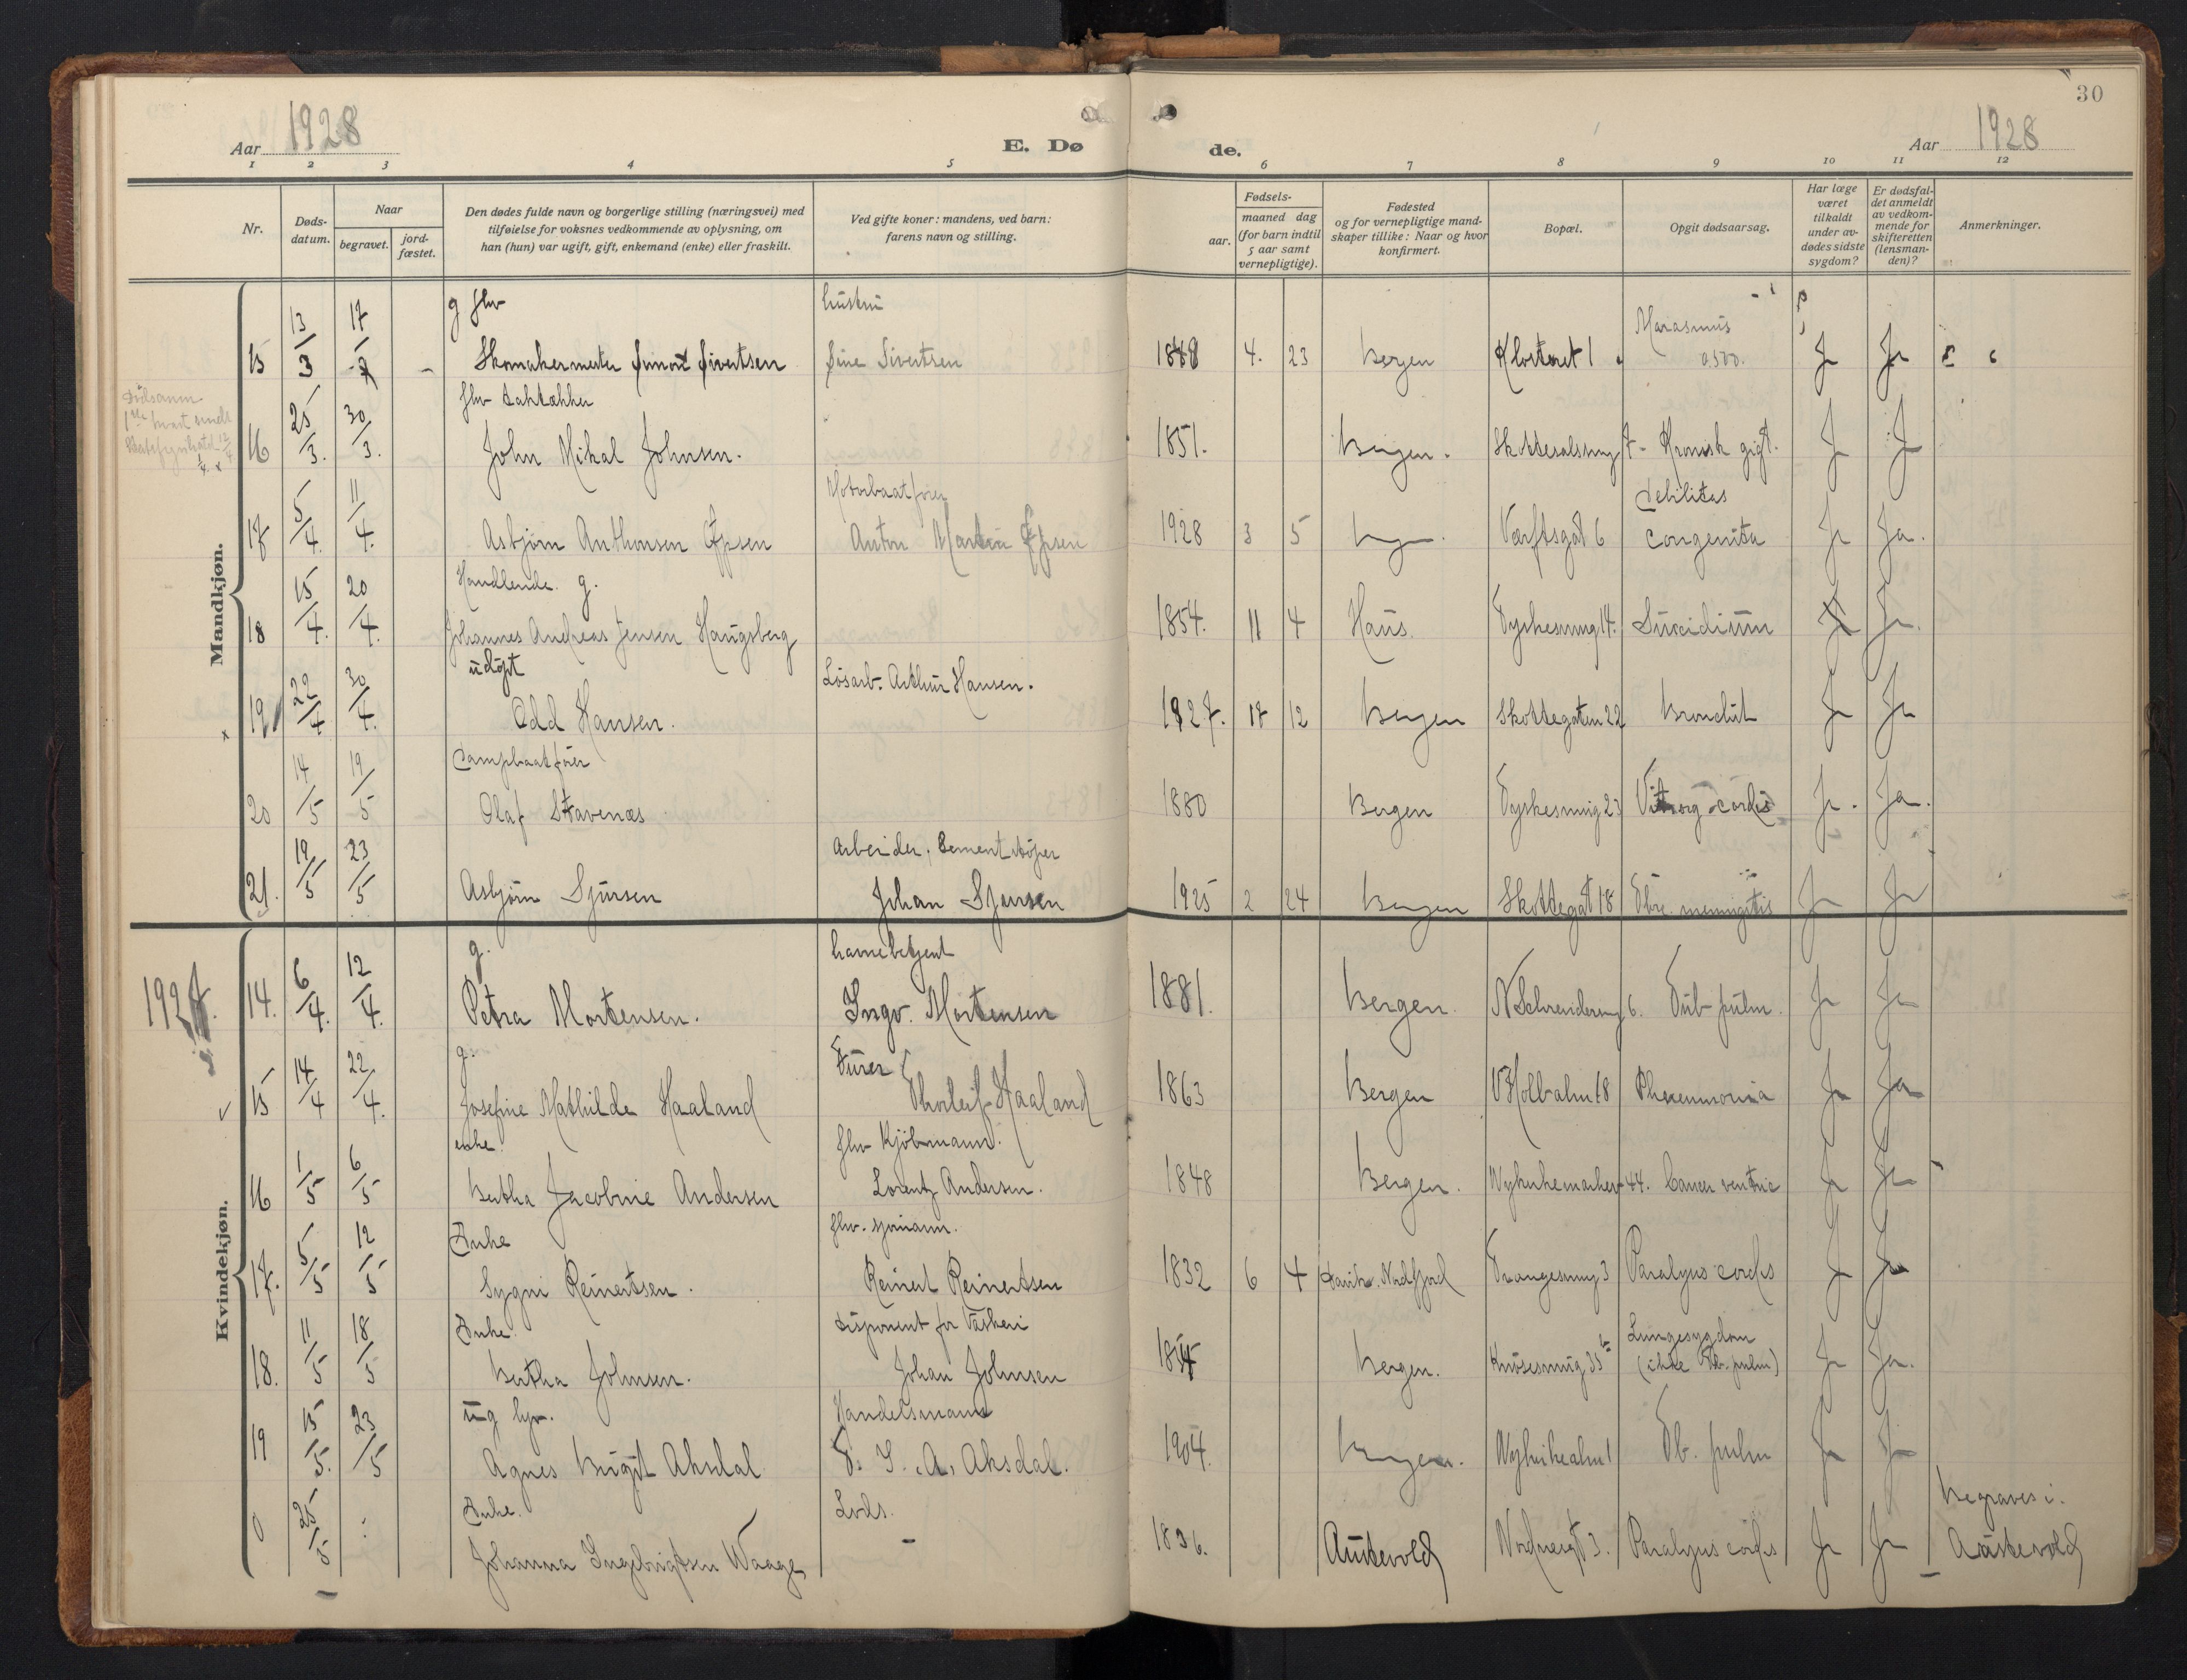 30
Aar 1928
E. Dø
de.
Aar 1928
1 2 3 4 5 6 7 8 9 10 11 12
Nr.
Døds-
datum.
Naar
begravet.
jord-
fæstet.
Den dødes fulde navn og borgerlige stilling (næringsvei) med
tilføielse for voksnes vedkommende av oplysning, om
han (hun) var ugift, gift, enkemand (enke) eller fraskilt.
Ved gifte koner: mandens, ved barn:
farens navn og stilling.
Fødsels-
aar.
maaned dag
(for barn indtil
5 aar samt
vernepligtige).
Fødested
og for vernepligtige mand-
skaper tillike: Naar og hvor
konfirmert.
Bopæl.
Opgit dødsaarsag.
Har læge
været
tilkaldt
under av-
dødes sidste
sygdom?
Er dødsfal-
det anmeldt
av vedkom-
mende for
skifteretten
(lensman-
den)?
Anmerkninger.
Mandkjøn.
g fhv hustru Marasmus
15 13/3 17/3 - Skomakermester Simon Sivertsen Sine Sivertsen 1848 4. 23 Bergen Klosteret 1 Ja Ja
fhv taktækker
16 25/3. 30/3. John Mikal Johnsen. 1851. Bergen. 7 - Kronisk gigt. J J
Motorbaatfører debilitas
17 5/4. 11/4. Asbjørn Anthonsen Anton 1928 3 5 Bergen. Værftsgat 6 congenita Ja Ja.
Handlende. g.
18 15/4. 20/4. Johannes Andreas Jensen Haugsberg 1854. 11 4 Haus. Tyskesmug 14. Suicidium Ja.
udøpt Løsarb. Arthur Hansen.
19 22/4 30/4. Odd Hansen. 1927. 12 Bergen Skottegaten 22 Bronchit Ja Ja
Dampbaatfører
20 14/5 19/5 Olaf Stavenæs 1880 Bergen Tyskesmug 23 cordis Ja. Ja.
Arbeider, Cementstøper
21. 19/5 23/5 Asbjørn Sjursen Johan Sjursen 1925 2 24 Bergen Skottegat 18 meningitis Ja Ja
Kvindekjøn.
g. havnebetjent
14. 6/4. 12/4. Petra Mortensen. Ingv. Mortensen 1881. Bergen. 6. Tub. pulm. Ja Ja
g.
15 14/4 22/4. Josefine Mathilde Haaland Thorleif Haaland 1863 Bergen Ja Ja
enke. fhv Kjøbmann.
16 1/5 6/5 Bertha Jacobine Andersen Lorentz Andersen. 1848 Bergen. Nykirkemarken 44. Cancer ventric Ja Ja
Enke fhv. sjømann.
17. 5/5 12/5 Sygni Reinertsen. Reinert Reinertsen 1832 6 4 Nordfjord Trangesmug 3 Paralysis cordis Ja Ja
Enke. Disponent for Væskeri Lungesygdom
18. 11/5 18/5 Bertha Johnsen. Johan Johnsen Bergen. Knøsesmug 35 (ikke Tb. pulm) Ja Ja.
ug Handelsmann
19 15/5. 23/5 Agnes Birgit Aksdal T. I. A. Aksdal. 1904. Bergen. Nykirkealm 1 Tb. pulm Ja Ja
Enke. Lods. Begraves i
0 25/5 Johanna Ingebrigtsen Waage - 1836. Austevold Nordnesgt 3. Paralysis cordis Ja Ja Austevold